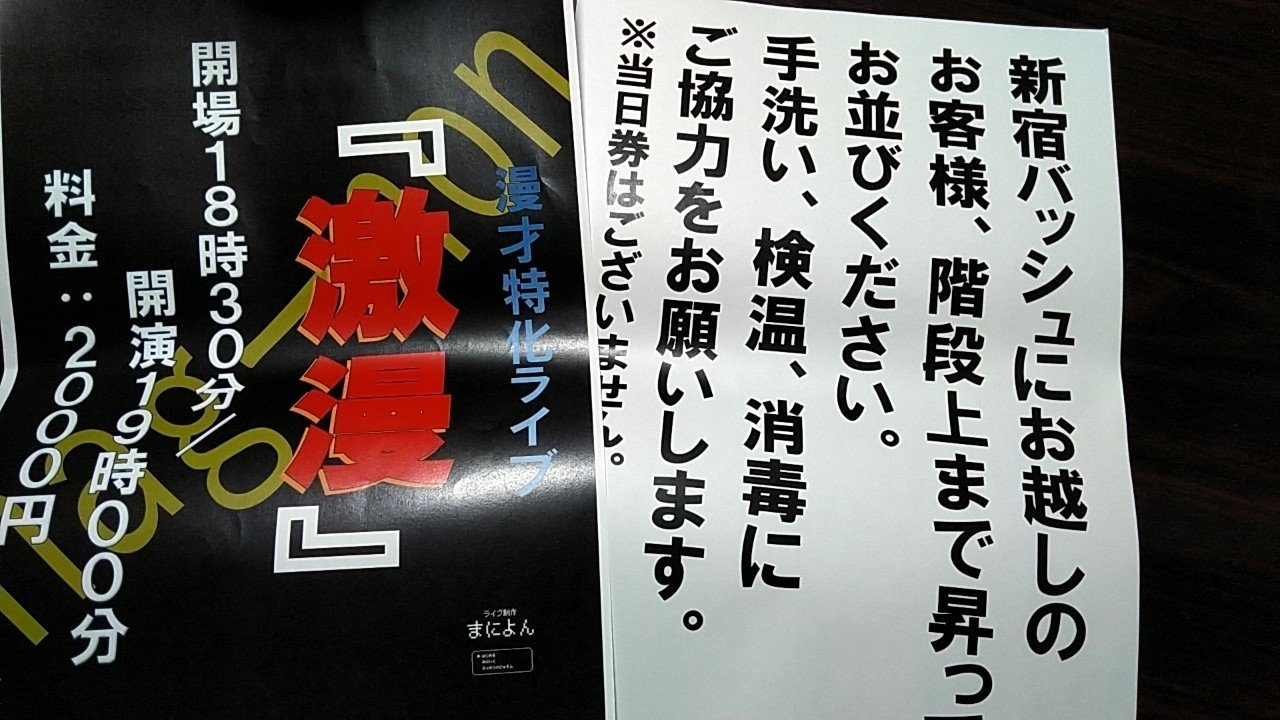 新宿バッシュにお越しの
お客様、階段上まで昇っ
お並びください。
手洗い、検温、消毒に
ご協力をお願いします。
※当日券はございません。
漫才特化ライブ
『激漫』
開場18時30分/
開演19時00分
料金：2000円
ライブ制作
まによん